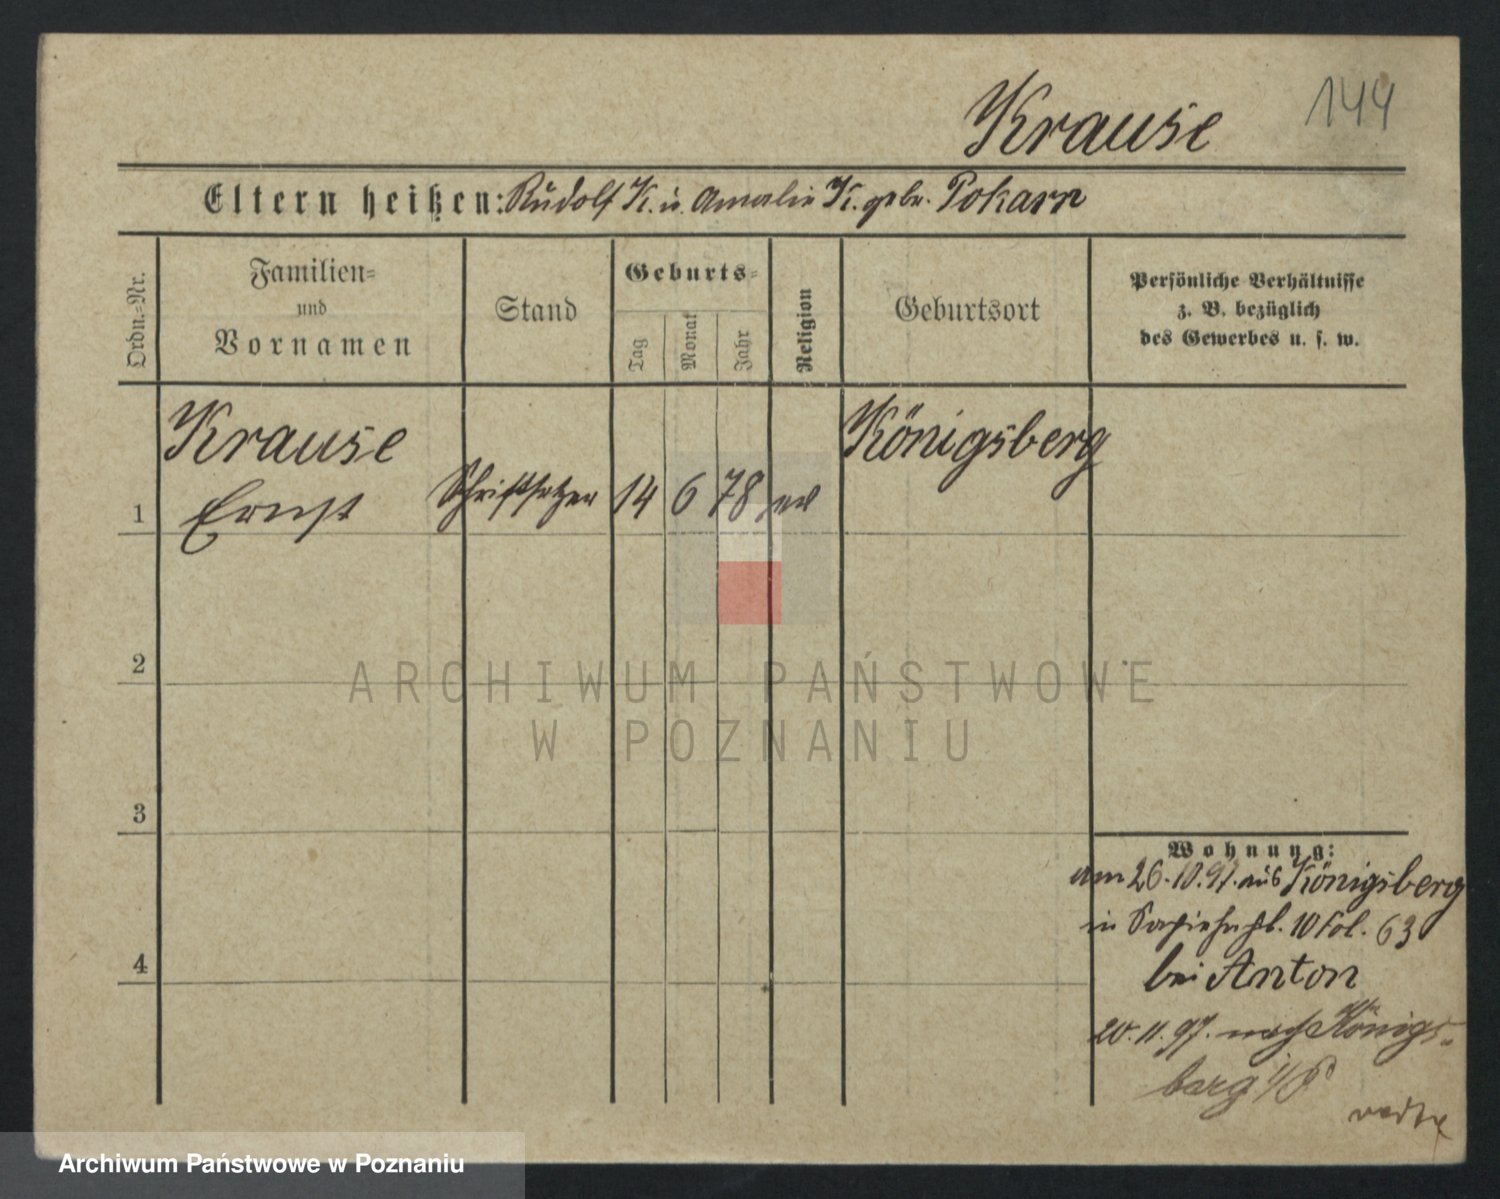 Krause 144
Eltern heißen: Rudolf K. u. Amalie K. geb. Pokarn
Ordn.=Nr.
Familien=
und
Vornamen
Stand
Geburts=
Tag
Monat
Jahr
Religion
Geburtsort
Persönliche Verhältnisse
z. B. bezüglich
des Gewerbes u. s. w.
Krause Königsberg
1 Ernst Schriftsetzer 14 6 78
2
3
4
Wohnung:
am 26.10.97. aus Königsberg
in 10 Fol. 63
bei Anton
20.11.97. nach Königs-
berg i/P
ARCHIWUM PAŃSTWOWE
W POZNANIU
Archiwum Państwowe w Poznaniu